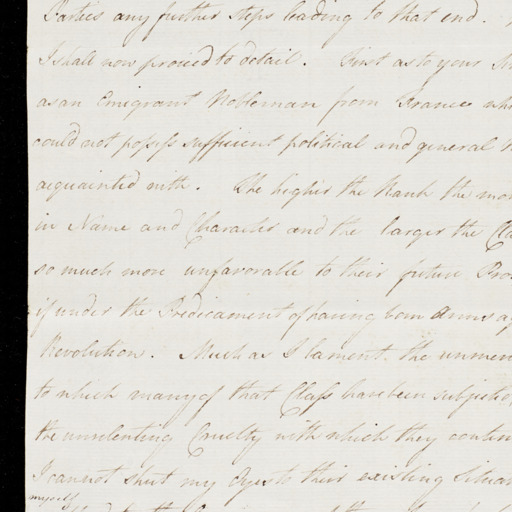 Parties any further steps leading to that end.
I shall now proceed to detail. First as to your
as an Emigrant Nobleman from France
could not possess sufficient political and general
acquainted with. The higher the Rank the
in Name and Character and the larger the
so much more unfavorable to their future
if under the Predicament of having born Arms
Revolution. Much as I lament the
to which many of that Class have been
the unrelenting Cruelty with which they
I cannot shut my Eyes to their existing
myself